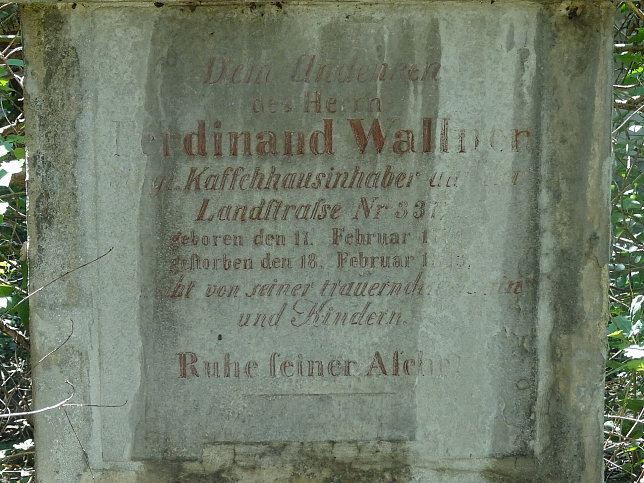 Dem Andenken
des Herrn
Ferdinand Wallner
Kaffehhausinhaber
Landstraſse Nr
geboren den 11. Februar
geſtorben den 18. Februar
von seiner trauernden
und Kindern.
Ruhe ſeiner Aſche